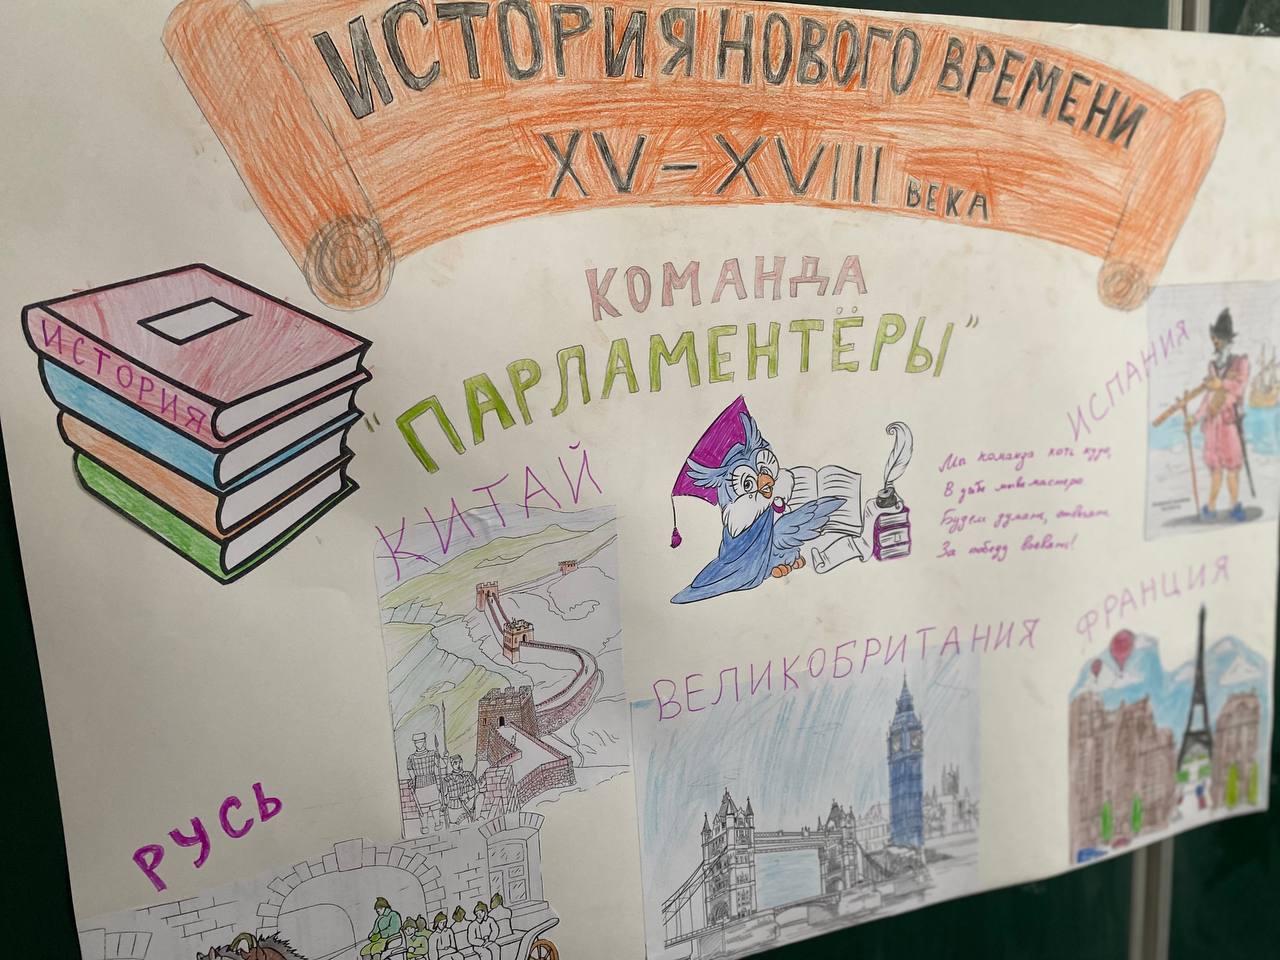 ИСТОРИЯ НОВОГО ВРЕМЕНИ
XV-XVIII ВЕКА
КОМАНДА
"ПАРЛАМЕНТЁРЫ"
ИСТОРИЯ
КИТАЙ
ИСПАНИЯ
Мы команда хоть куда,
В
Будем думать, отвечать
За победу воевать!
ВЕЛИКОБРИТАНИЯ
ФРАНЦИЯ
РУСЬ